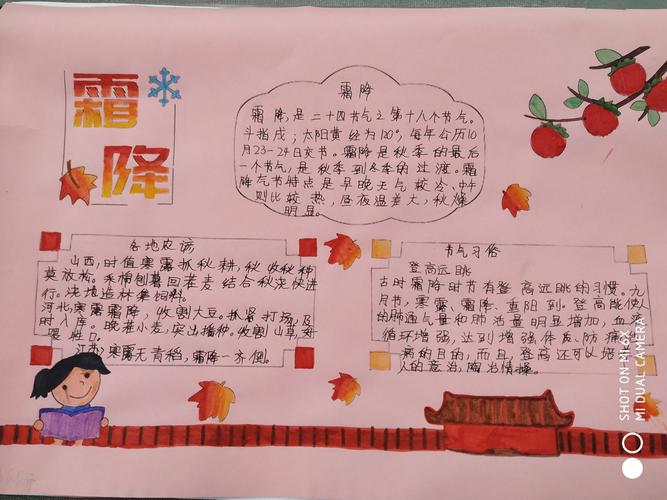 霜降
霜降
霜降,是二十四节气之第十八个节气。
斗指戌;太阳黄经为120°,每年公历10
月23-24日交节。霜降是秋季的最后
一个节气,是秋季到冬季的过渡。霜
降气节特点是早晚天气较冷、中午
则比较热,昼夜温差大,秋燥
明显。
各地农谚
山西,时值寒露抓秋耕,秋收秋种
莫放松。
结合秋浇快进
行。浇地造林
河北寒露霜降,收割大豆。抓紧打场,及
时入库。晚茬小麦,突出播种。收割山草
江苏,寒露无青稻,霜降一齐倒。
节气习俗
登高远眺
古时霜降时节有登高远眺的习惯。九
月节,寒露、霜降、重阳到。登高能使人
的肺通气量和肺活量明显增加,血液
循环增强,达到增强体质、防病
病的目的,而且,登高还可以培
人的意治,陶冶情操。
SHOT ON MI 6X
MI DUAL CAMERA